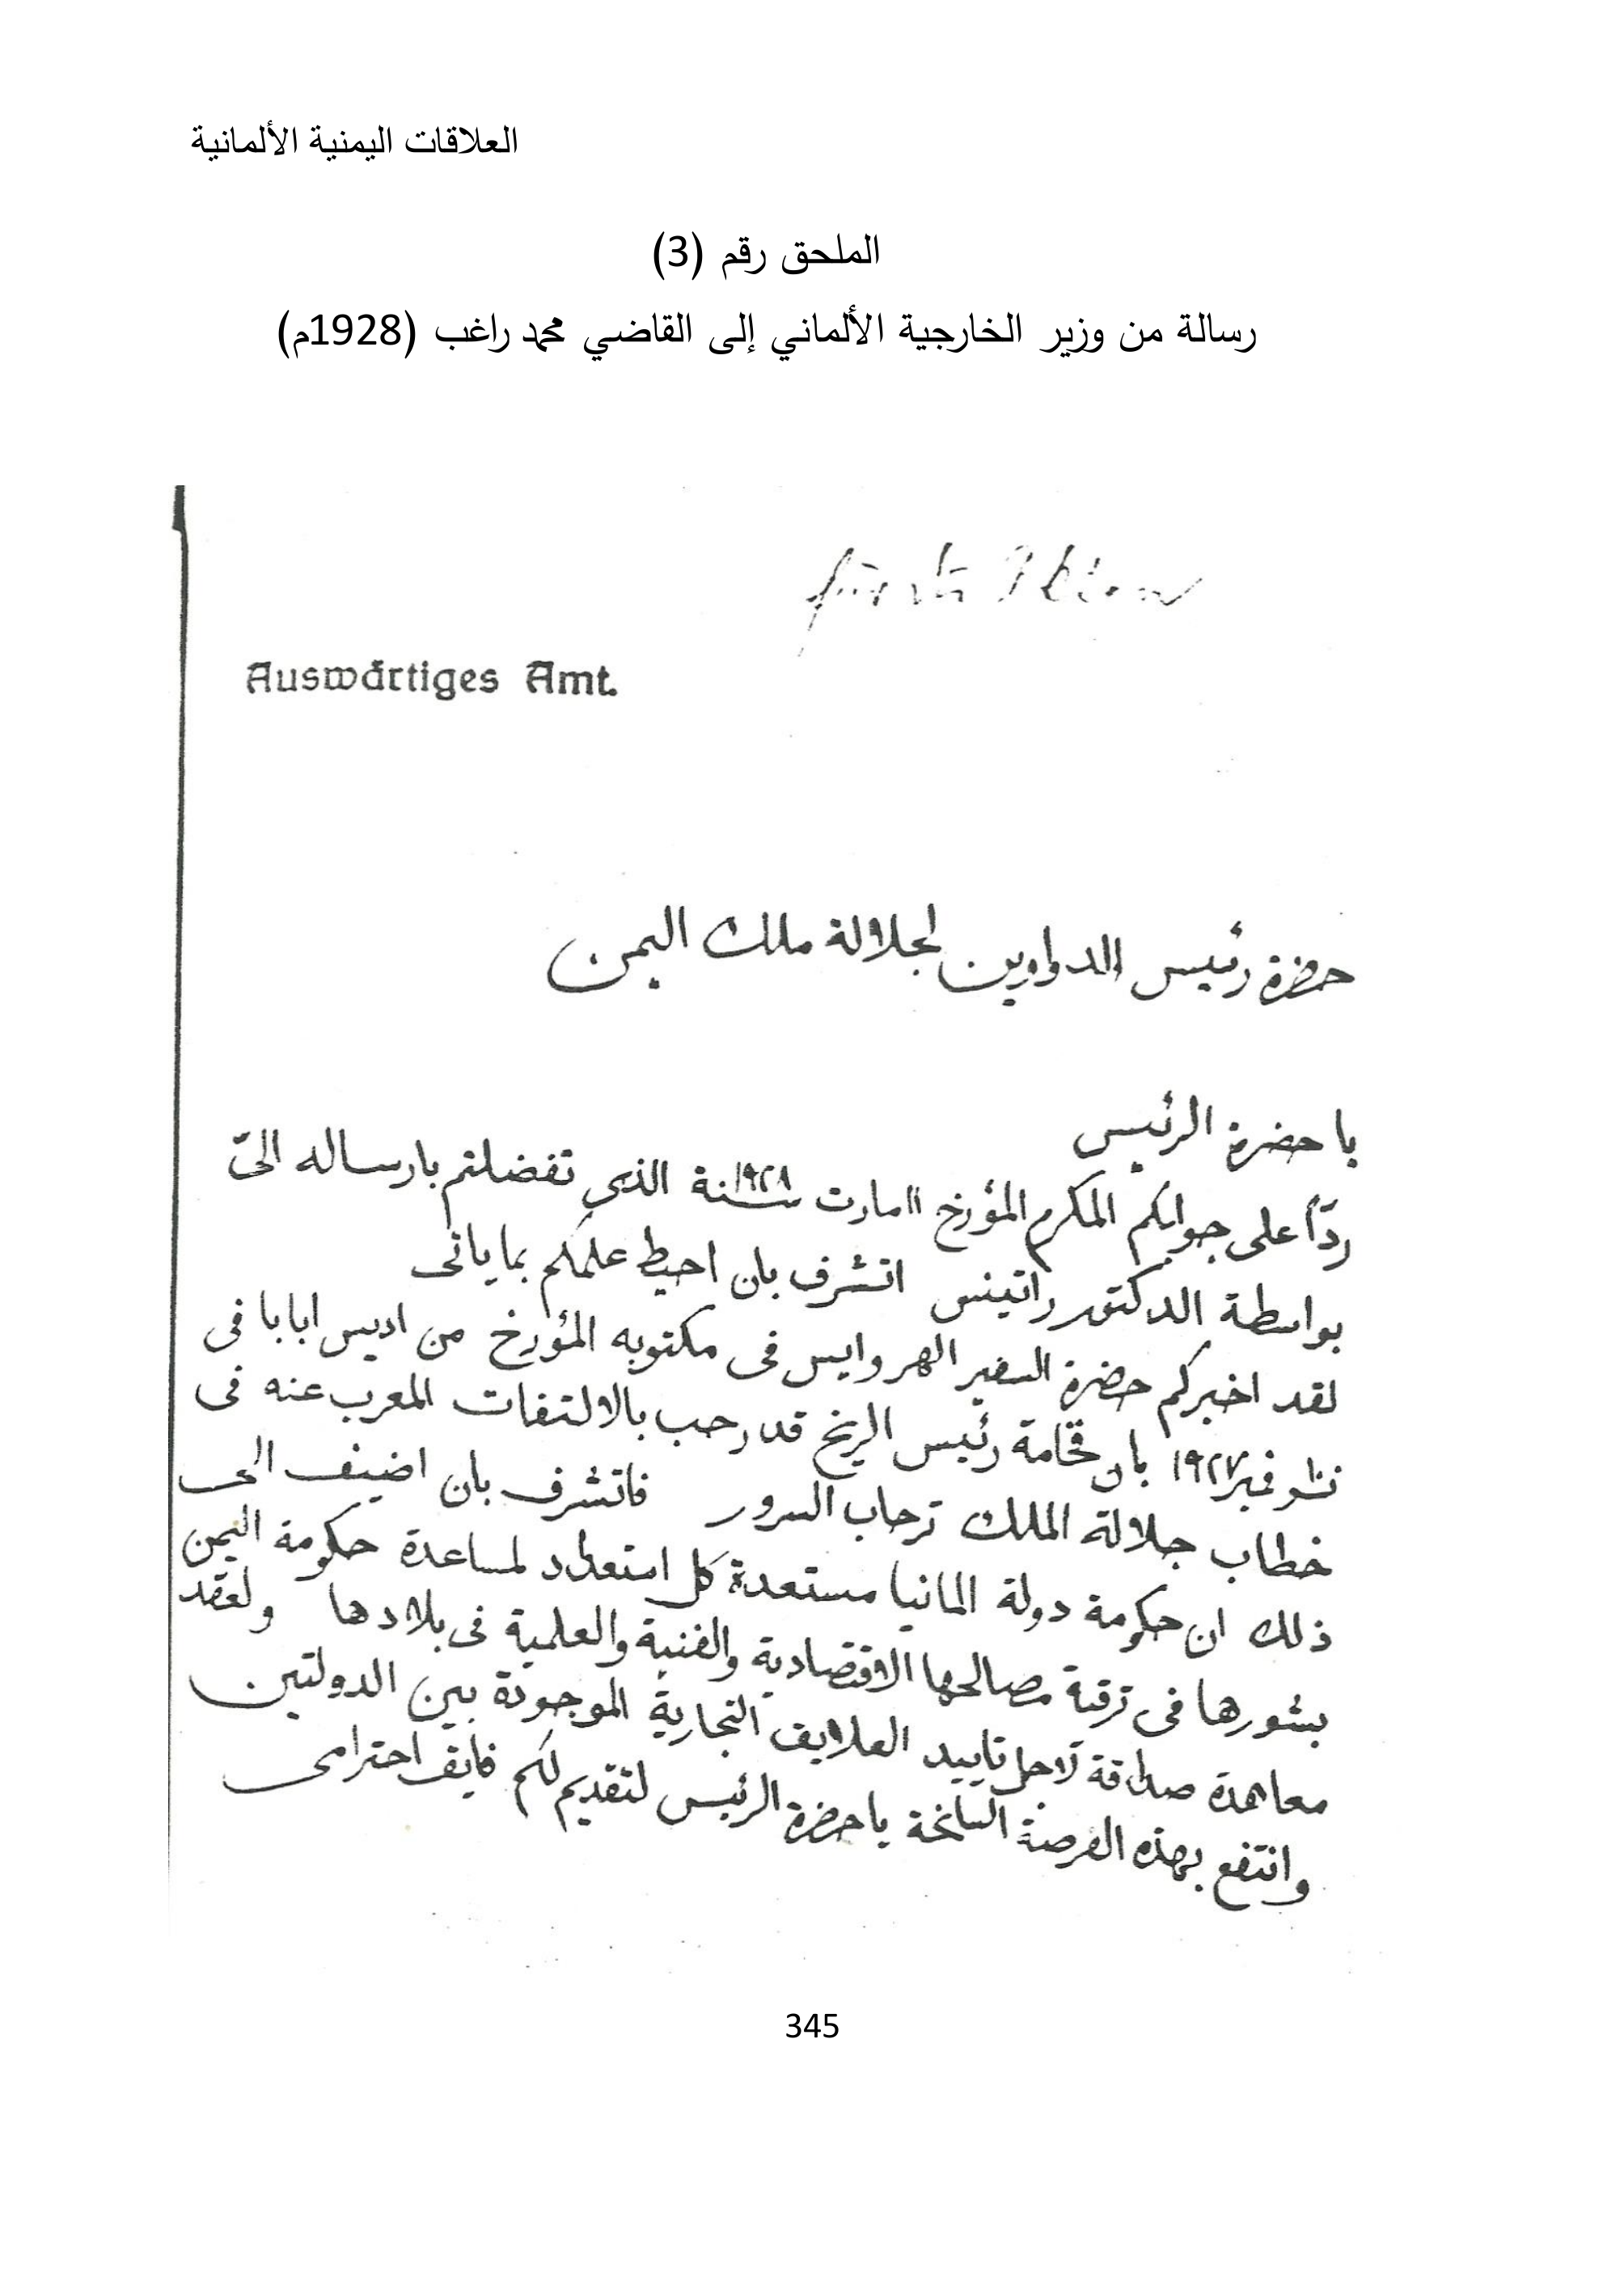 العلاقات اليمنية الألمانية
الملحق رقم (3)
رسالة من وزير الخارجية الألماني إلى القاضي محمد راغب (1928م)
Auswärtiges Amt.
حضرة رئيس الدواوين لجلالة ملك اليمن
يا حضرة الرئيس
ردّاً على جوابكم المكرم المؤرخ ١١ مارت سنة ١٩٢٨ الذي تفضلتم بارساله الىّ
بواسطة الدكتور راتينس اتشرف بان احيط علمكم بما ياتى
لقد اخبركم حضرة السفير الهر وايس فى مكتوبه المؤرخ من اديس ابابا فى
نوفمبر ١٩٢٧ بان فخامة رئيس الريخ قد رحب بالالتفات المعرب عنه فى
خطاب جلالة الملك ترحاب السرور فاتشرف بان اضيف الى
ذلك ان حكومة دولة المانيا مستعدة كل استعداد لمساعدة حكومة اليمن
بشورها فى ترقية مصالحها الاقتصادية والفنية والعلمية فى بلادها ولعقد
معاهدة صداقة لاجل تاييد العلايق التجارية الموجودة بين الدولتين
وانتفع بهذه الفرصة السانحة يا حضرة الرئيس لتقديم لكم فايق احترامى
345